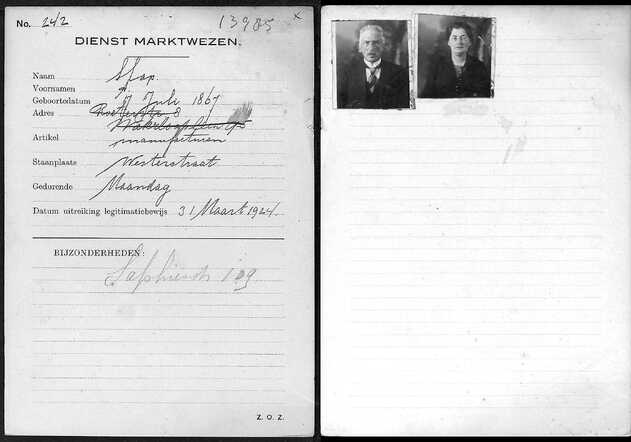 No. 242 13985 x
DIENST MARKTWEZEN.
Naam Sfap.
Voornamen
Geboortedatum 7 Juli 1867
Adres 8
Artikel manufacturen
Staanplaats Westerstraat
Gedurende Maandag
Datum uitreiking legitimatiebewijs 31 Maart 1924.
BIJZONDERHEDEN:
129
Z. O. Z.